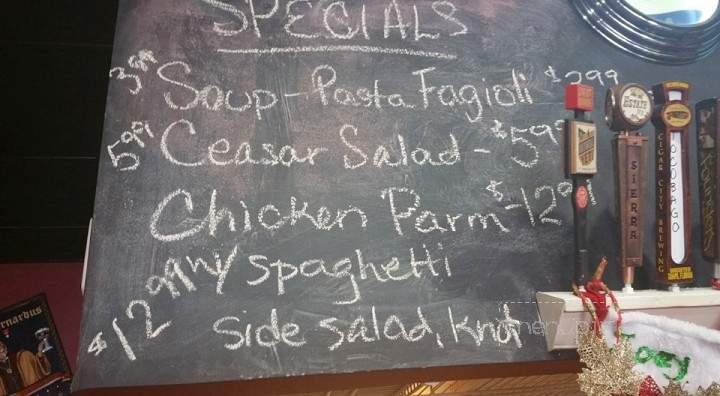 SPECIALS
3.99 Soup - Pasta Fagioli $2.99
5.99 Ceasar Salad - $5.99
Chicken Parm - $12.99
$12.99 w/ spaghetti
side salad, knot
ESTATE
SIERRA
CIGAR CITY BREWING
TOCOBAGO
rnardus